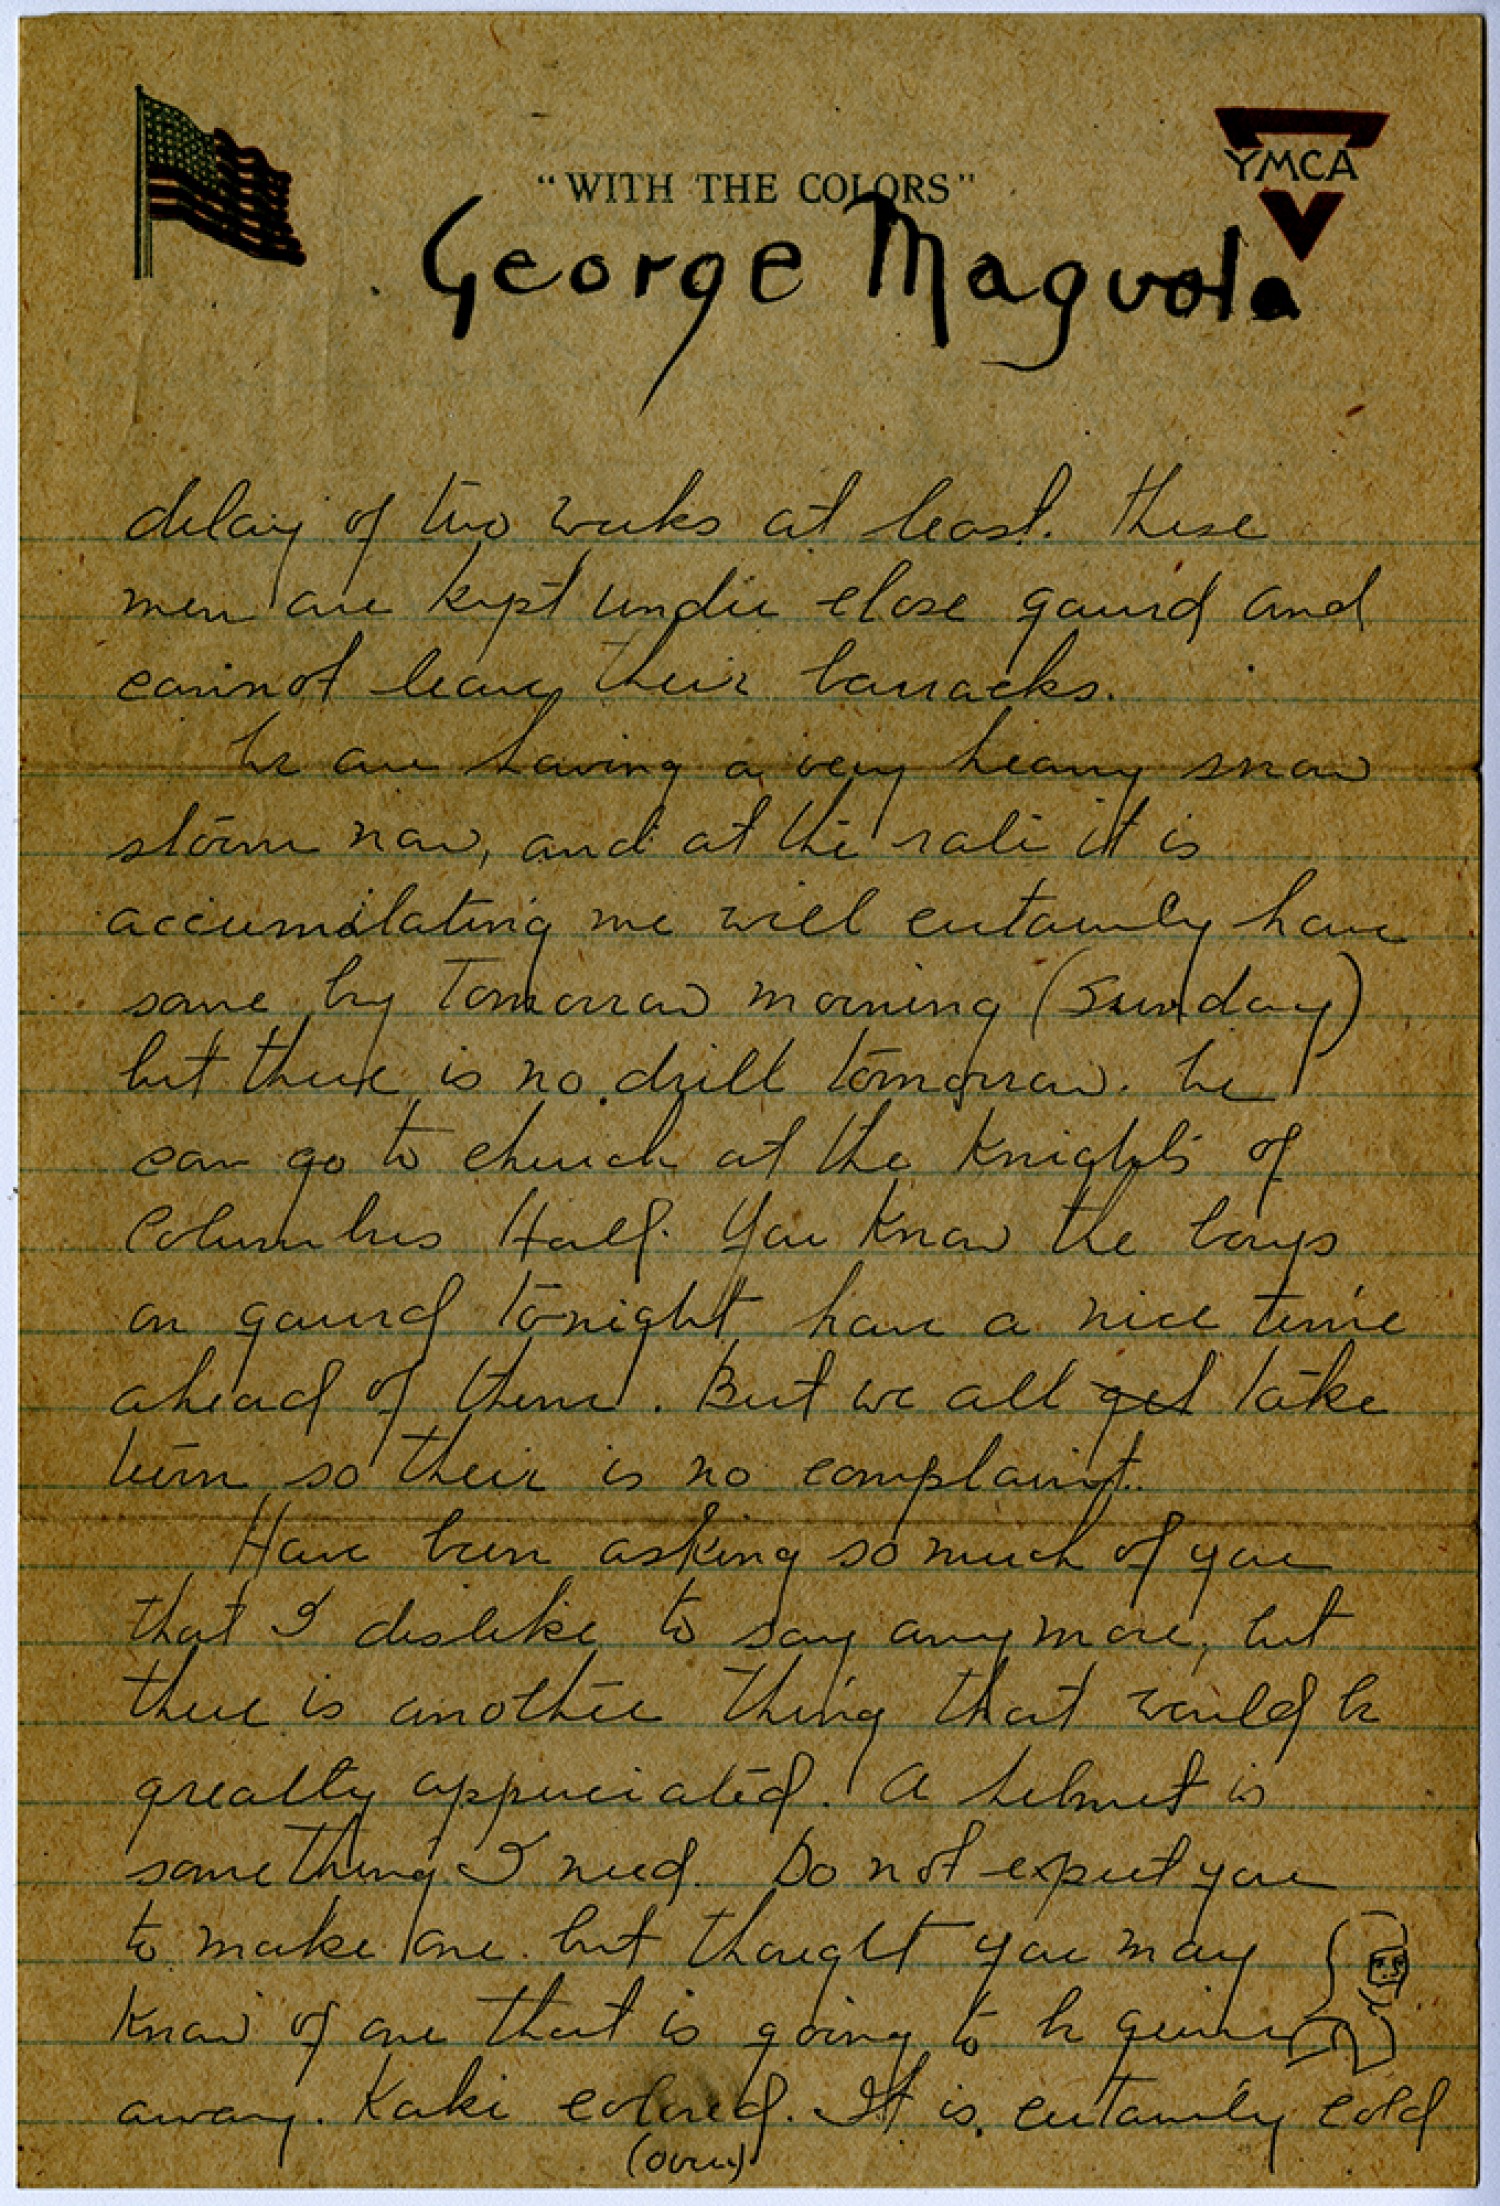 "WITH THE COLORS"
YMCA
George Maguola
delay of two weeks at least. These
men are kept under close gaurd and
cannot leave their barracks.
We are having a very heavy snow
storm now, and at the rate it is
accumilating we will certainly have
some by Tomorrow morning (Sunday)
but there is no drill tomorrow. We
can go to church at the Knights of
Columbus Hall. You know the boys
on gaurd tonight have a nice time
ahead of them. But we all get take
turn so their is no complaint.
Have been asking so much of you
that I dislike to say anymore, but
there is another thing that would be
greatly appreciated. A helmet is
something I need. Do not expect you
to make one but thought you may
know of one that is going to be given
away. Kaki colored. It is certainly cold
(over)